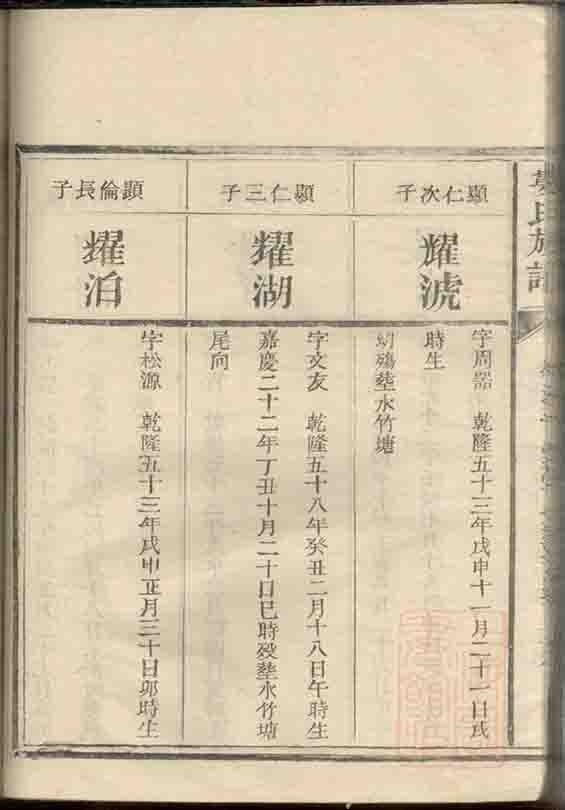 氏族譜
顯仁次子
耀淲
字周器 乾隆五十三年戊申十一月二十一日戌
時生
幼殤塟水竹塘
顯仁三子
耀湖
字文友 乾隆五十八年癸丑二月十八日午時生
嘉慶二十二年丁丑十月二十日巳時歿塟水竹塘
尾向
顯倫長子
耀泊
字松源 乾隆五十三年戊申正月三十日卯時生